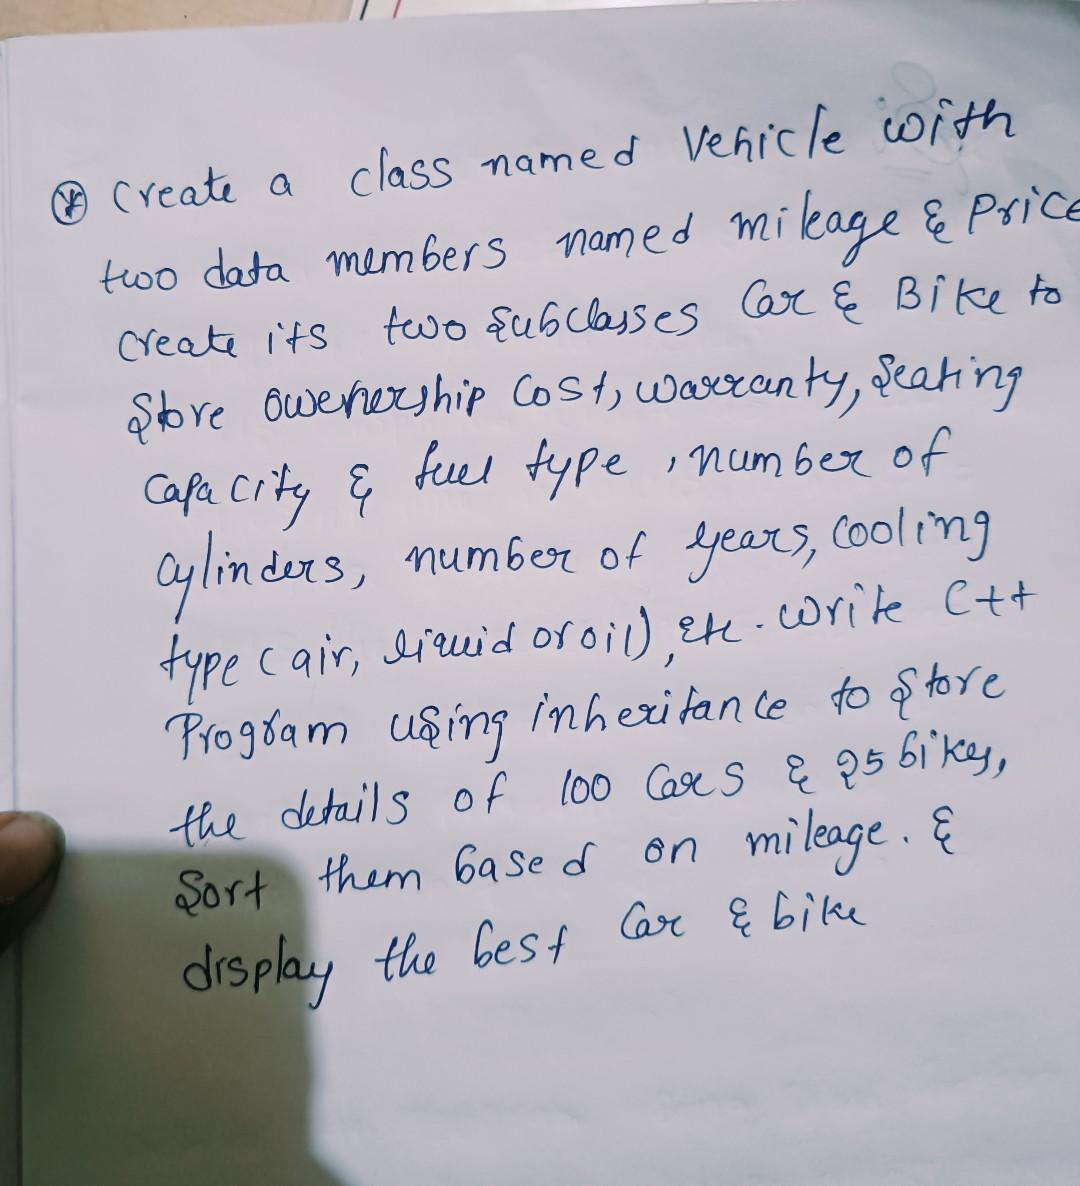 * Create a class named Vehicle with
two data members named mileage & Price
Create its two Subclasses Car & Bike to
Store Owenership Cost, warranty, Seating
Capacity & fuel type, number of
Cylinders, number of years, Cooling
type (air, liquid or oil), etc. Write C++
Program using inheritance to Store
the details of 100 Cars & 25 bikes,
Sort them based on mileage. &
display the best Car & bike